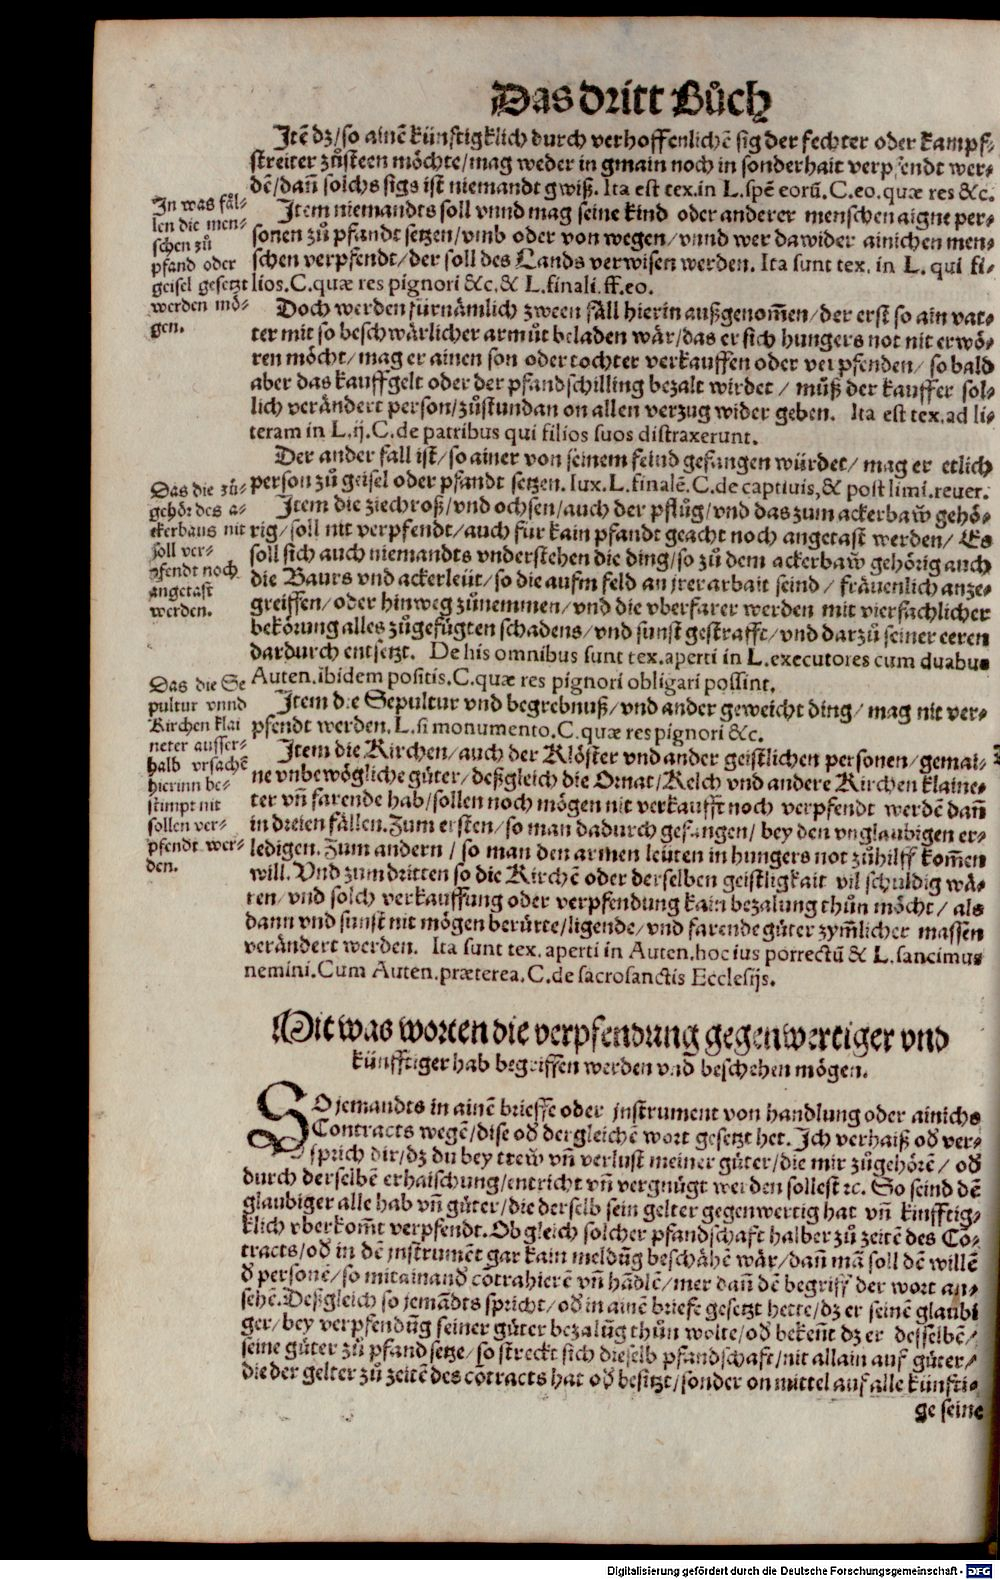 Das dritt Bůch
Jtē dz/so ainē künstigklich durch verhoffenlichē sig der fechter oder kampf⸗
streiter zůsteen möchte/mag weder in gmain noch in sonderhait verpfendt wer⸗
dē/dañ solchs sigs ist niemandt gwiß. Ita est tex.in L.spē eorũ.C.eo.quæ res &c.
In was fäl⸗
len die men⸗
schen zů
pfand oder
geisel gesetzt
werden mö⸗
gen.
Jtem niemandts soll vnnd mag seine kind oder anderer menschen aigne per⸗
sonen zů pfandt setzen/vmb oder von wegen/vnnd wer dawider ainichen men⸗
schen verpfendt/der soll des Lands verwisen werden. Ita sunt tex. in L. qui fi⸗
lios.C.quæ res pignori &c.& L.finali.ff.eo.
Doch werden fürnämlich zween fäll hierin außgenom̃en/der erst so ain vat⸗
ter mit so beschwärlicher armůt beladen wär/das er sich hungers not nit erwö⸗
ren möcht/mag er ainen son oder tochter verkauffen oder verpfenden/so bald
aber das kauffgelt oder der pfandschilling bezalt wirdet/můß der kauffer sol⸗
lich verändert person/zůstundan on allen verzug wider geben. Ita est tex.ad li⸗
teram in L.ij.C.de patribus qui filios suos distraxerunt.
Der ander fall ist/so ainer von seinem feind gefangen würdet/mag er etlich
person zů geisel oder pfandt setzen. Iux.L.finalē.C.de captiuis,& post limi.reuer.
Das die zů⸗
gehör des a⸗
ckerbaus nit
soll ver⸗
pfendt noch
angetast
werden.
Jtem die ziechroß/vnd ochsen/auch der pflůg/vnd das zum ackerbaw̃ gehö⸗
rig/soll nit verpfendt/auch für kain pfandt geacht noch angetast werden/Es
soll sich auch niemandts vnderstehen die ding/so zů dem ackerbaw̃ gehörig auch
die Baurs vnd ackerleüt/so die aufm feld an jrer arbait seind/fräuenlich anze⸗
greiffen/oder hinweg zůnemmen/vnd die vberfarer werden mit viersachlicher
bekörung alles zůgefügten schadens/vnd sunst gestrafft/vnd darzů seiner eeren
dardurch entsetzt. De his omnibus sunt tex.aperti in L.executores cum duabus
Auten.ibidem positis.C.quæ res pignori obligari possint.
Das die Se
pultur vnnd
Kirchen klai
neter ausser⸗
halb vrsachē
hierinn be⸗
stimpt nit
sollen ver⸗
pfendt wer⸗
den.
Jtem die Sepultur vnd begrebnuß/vnd ander geweicht ding/mag nit ver⸗
pfendt werden.L.si monumento.C.quæ res pignori &c.
Jtem die Kirchen/auch der Klöster vnd ander geistlichen personen/gemai⸗
ne vnbewögliche güter/deßgleich die Ornat/Kelch vnd andere Kirchen klaine⸗
ter vñ farende hab/sollen noch mögen nit verkaufft noch verpfendt werdē dañ
in dreien fällen.Zum ersten/so man dadurch gefangen/bey den vnglaubigen er⸗
ledigen.Zum andern/so man den armen leüten in hungers not zůhilff kom̃en
will.Vnd zum dritten so die Kirchē oder derselben geistligkait vil schuldig wä⸗
ren/vnd solch verkauffung oder verpfendung kain bezalung thůn möcht/als
dann vnd sunst nit mögen berürte/ligende/vnd farende güter zym̃licher massen
verändert werden. Ita sunt tex.aperti in Auten.hoc ius porrectũ & L.sancimus
nemini.Cum Auten.præterea.C.de sacrosanctis Ecclesijs.
Mit was worten die verpfendung gegenwertiger vnd
künfftiger hab begriffen werden vnd beschehen mögen.
SO jemandts in ainē brieffe oder jnstrument von handlung oder ainichs
Contracts wegē/dise oď dergleichē wort gesetzt het. Ich verhaiß oď ver⸗
sprich dir/dz du bey trew̃ vñ verlust meiner güter/die mir zůgehörē/oď
durch derselbē erhaischung/entricht vñ vergnügt werden sollest ꝛc. So seind dē
glaubiger alle hab vñ güter/die derselb sein gelter gegenwertig hat vñ kinfftig⸗
klich vberkom̃t verpfendt.Ob gleich solcher pfandschafft halber zů zeitē des Cō⸗
tracts/oď in dē jnstrumēt gar kain meldũg beschähē wär/dañ mā soll dē willē
ď personē/so mitainanď cōtrahierē vñ hādlē/mer dañ dē begriff der wort an⸗
sehē.Deßgleich so jemādts spricht/oď in ainē briefe gesetzt hette/dz er seinē glaubi
ger/bey verpfendũg seiner güter bezalũg thůn wolte/oď bekeñt dz er desselbē/
seine güter zů pfand setze/so streckt sich dieselb pfandschaft/nit allain auf güter/
die der gelter zů zeitē des cōtracts hat oď besitzt/sonder on mittel auf alle künfti⸗
ge seine
Digitalisierung gefördert durch die Deutsche Forschungsgemeinschaft - DFG